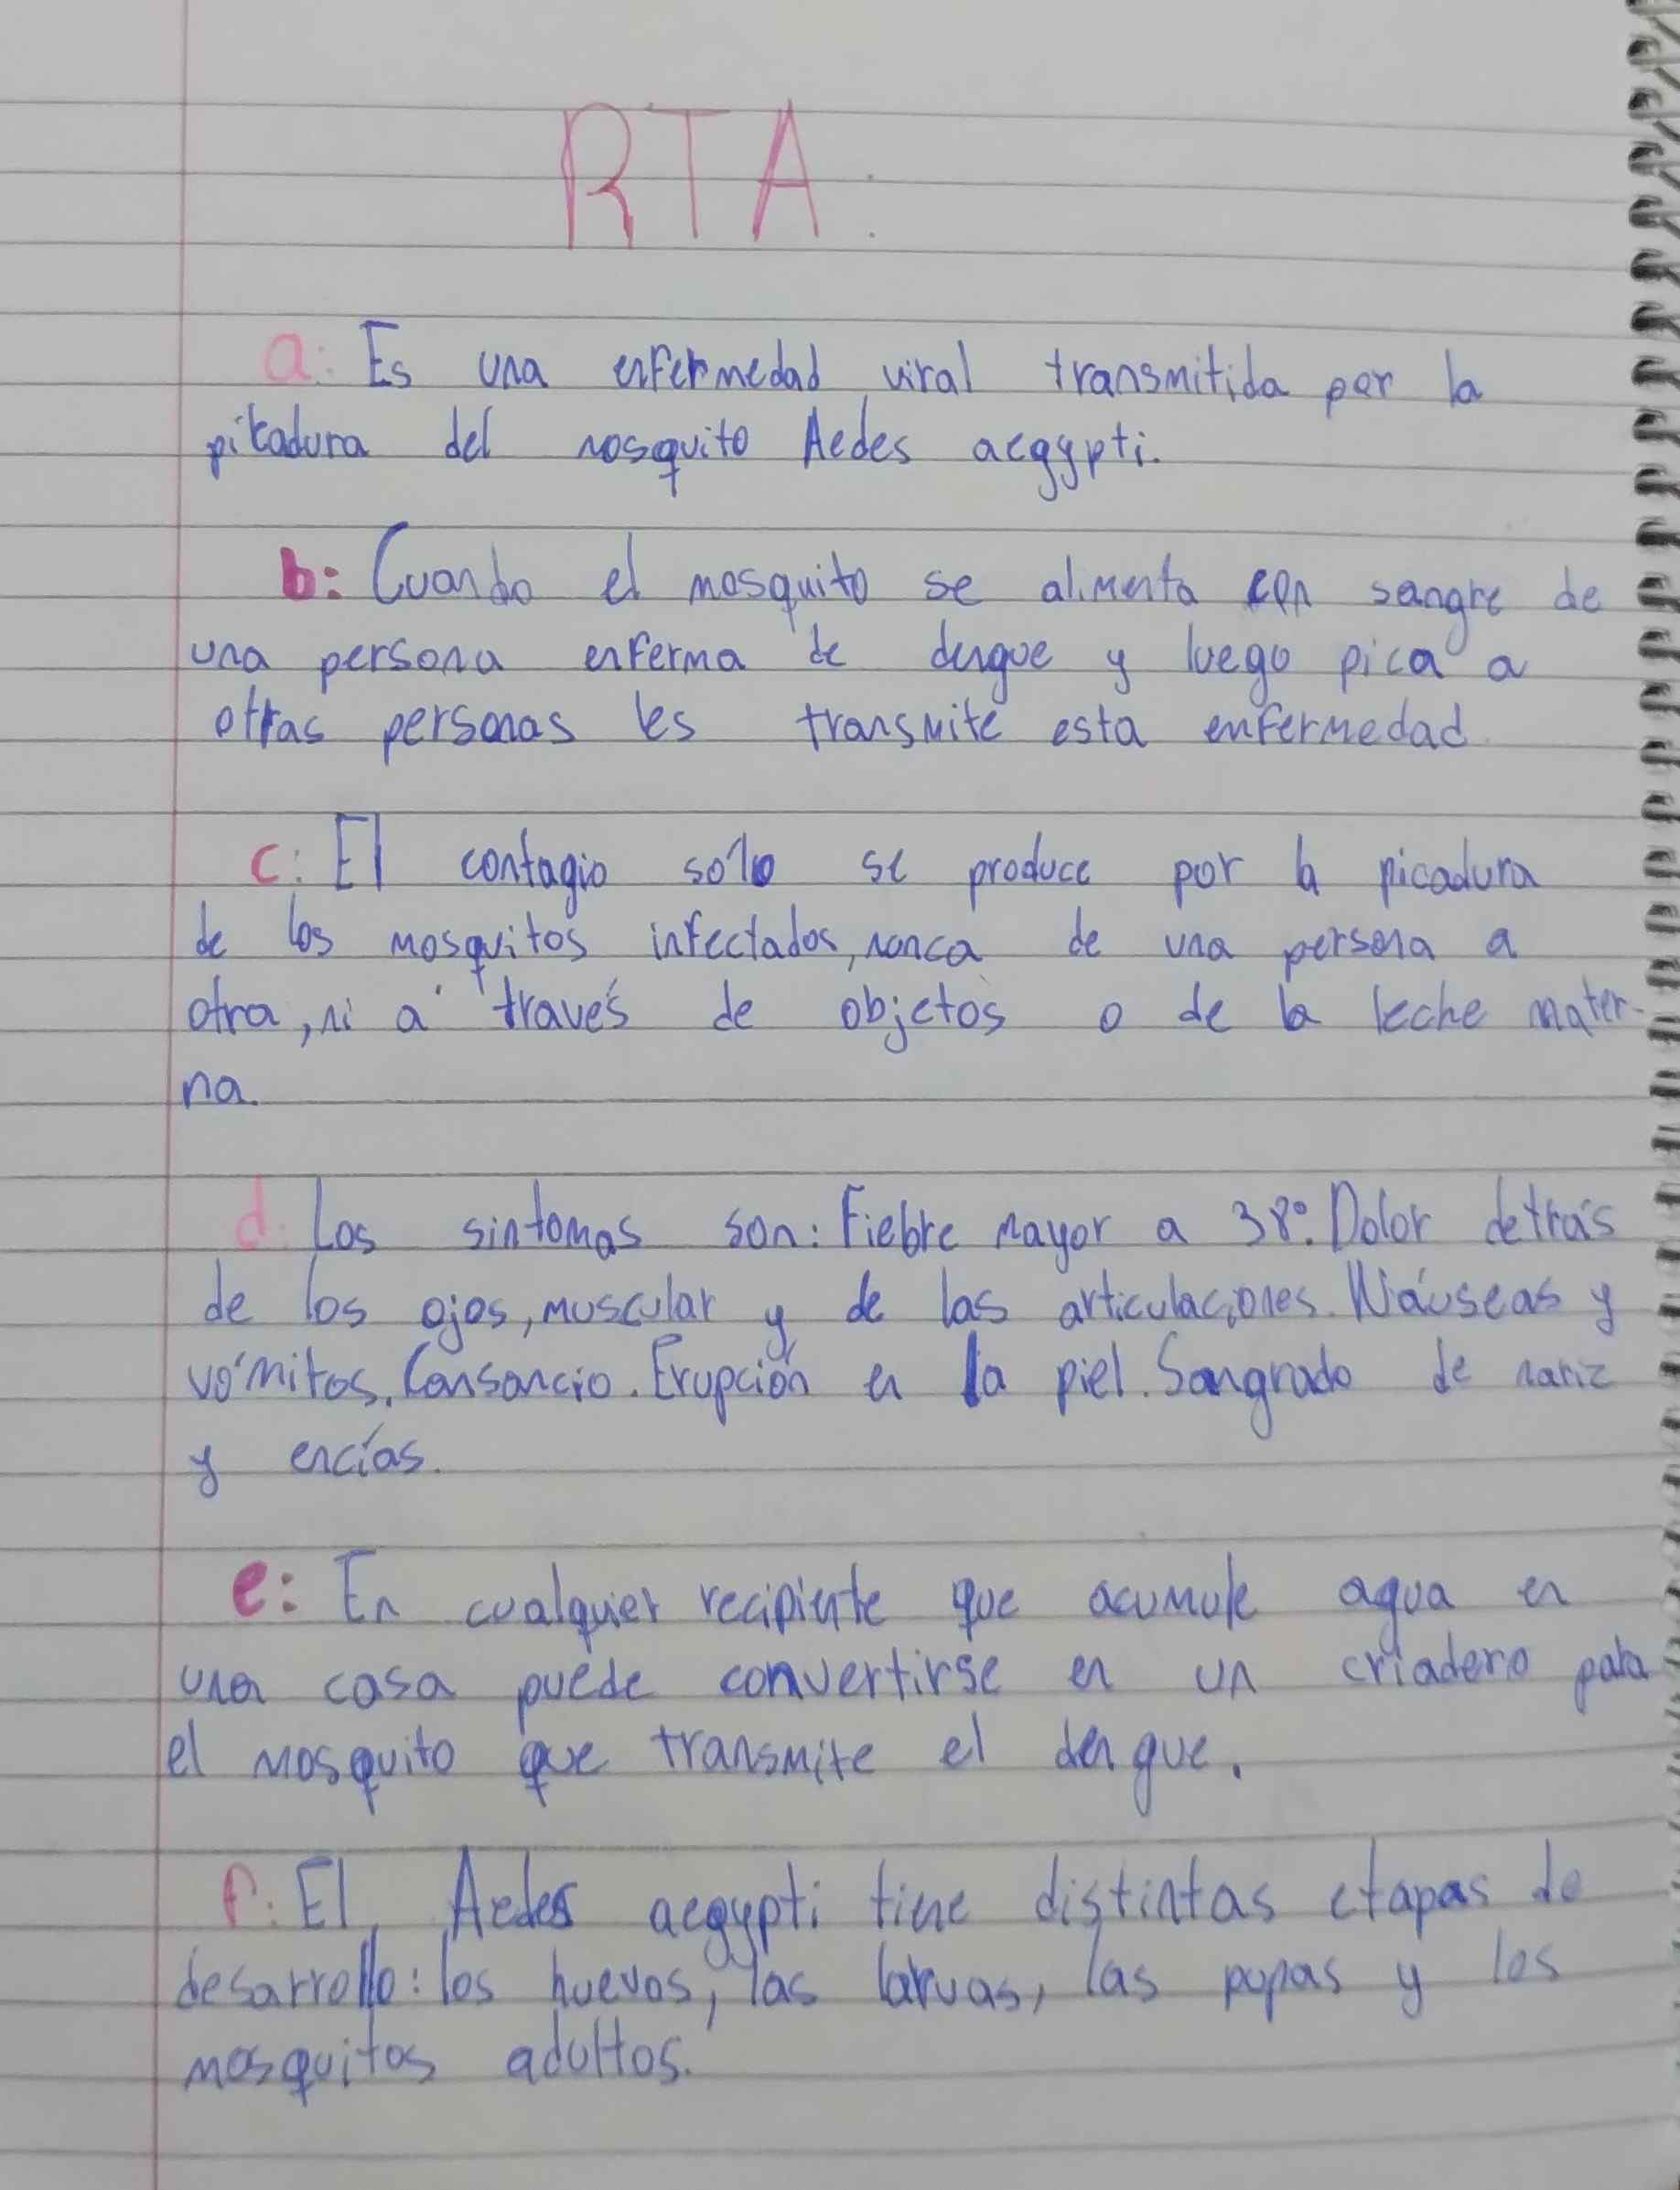 RTA.
a: Es una enfermedad viral transmitida por la
picadura del mosquito Aedes aegypti.
b: Cuando el mosquito se alimenta con sangre de
una persona enferma de dengue y luego pica a
otras personas les transmite esta enfermedad
c: El contagio solo se produce por la picadura
de los mosquitos infectados, nunca de una persona a
otra, ni a través de objetos o de la leche mater-
na.
d: Los sintomas son: Fiebre mayor a 38°. Dolor detrás
de los ojos, muscular y de las articulaciones. Náuseas y
vómitos. Cansancio. Erupción en la piel. Sangrado de nariz
y encías.
e: En cualquier recipiente que acumule agua en
una casa puede convertirse en un criadero para
el mosquito que transmite el dengue.
f: El Aedes aegypti tiene distintas etapas de
desarrollo: los huevos, las larvas, las pupas y los
mosquitos adultos.